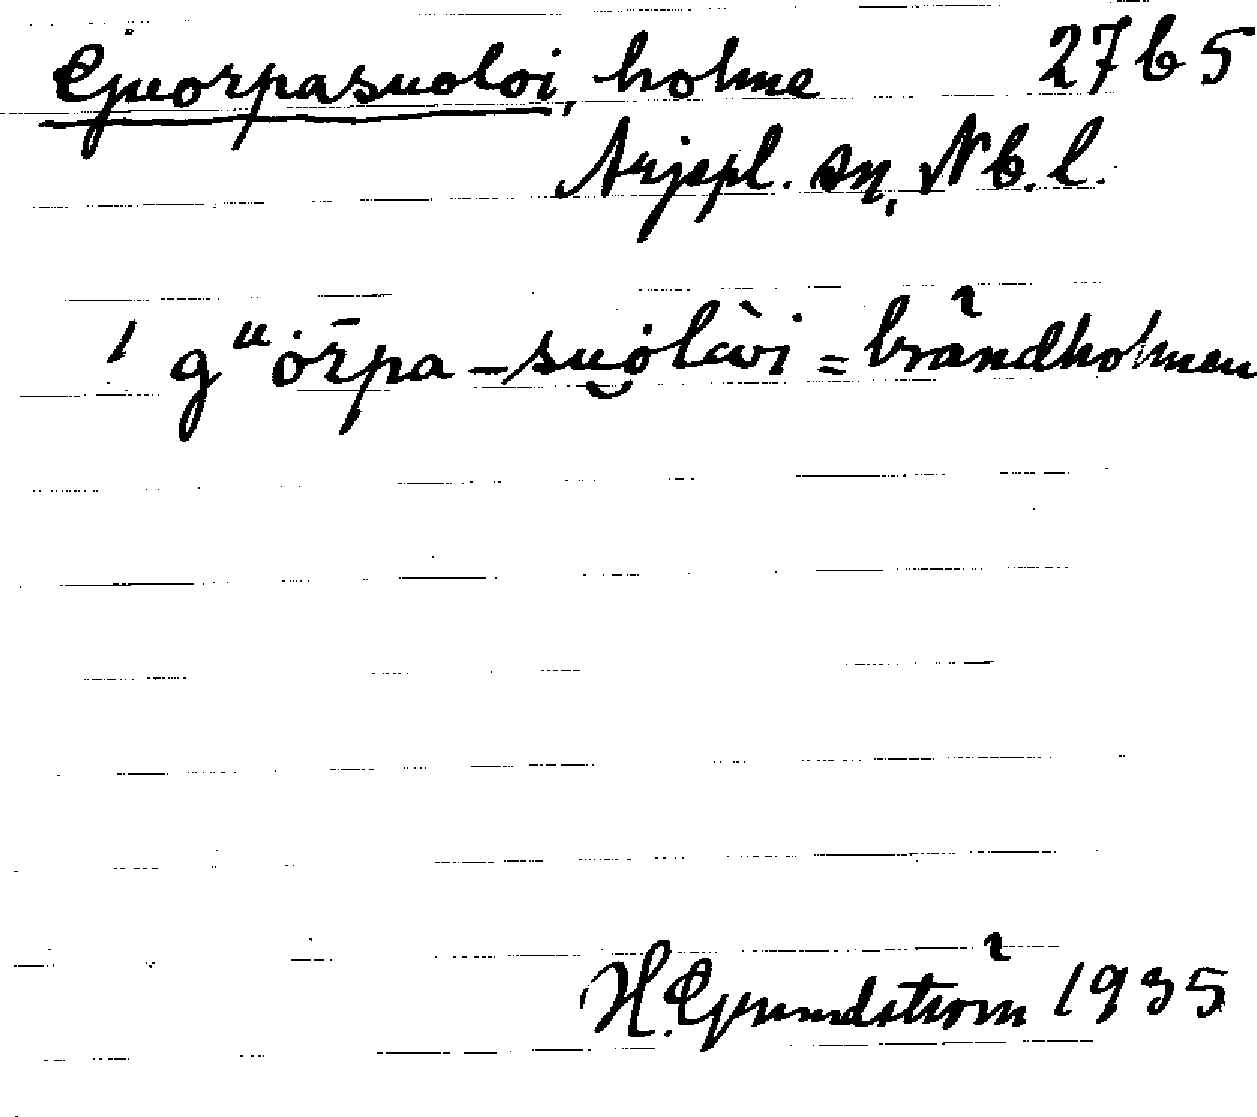 Guorpasuoloi, holme 2765
Arjepl. sn, Nb. l.
/ gᵘȯr̄pa-su̯ȯlàvi = brändholmen
H. Grundström 1935